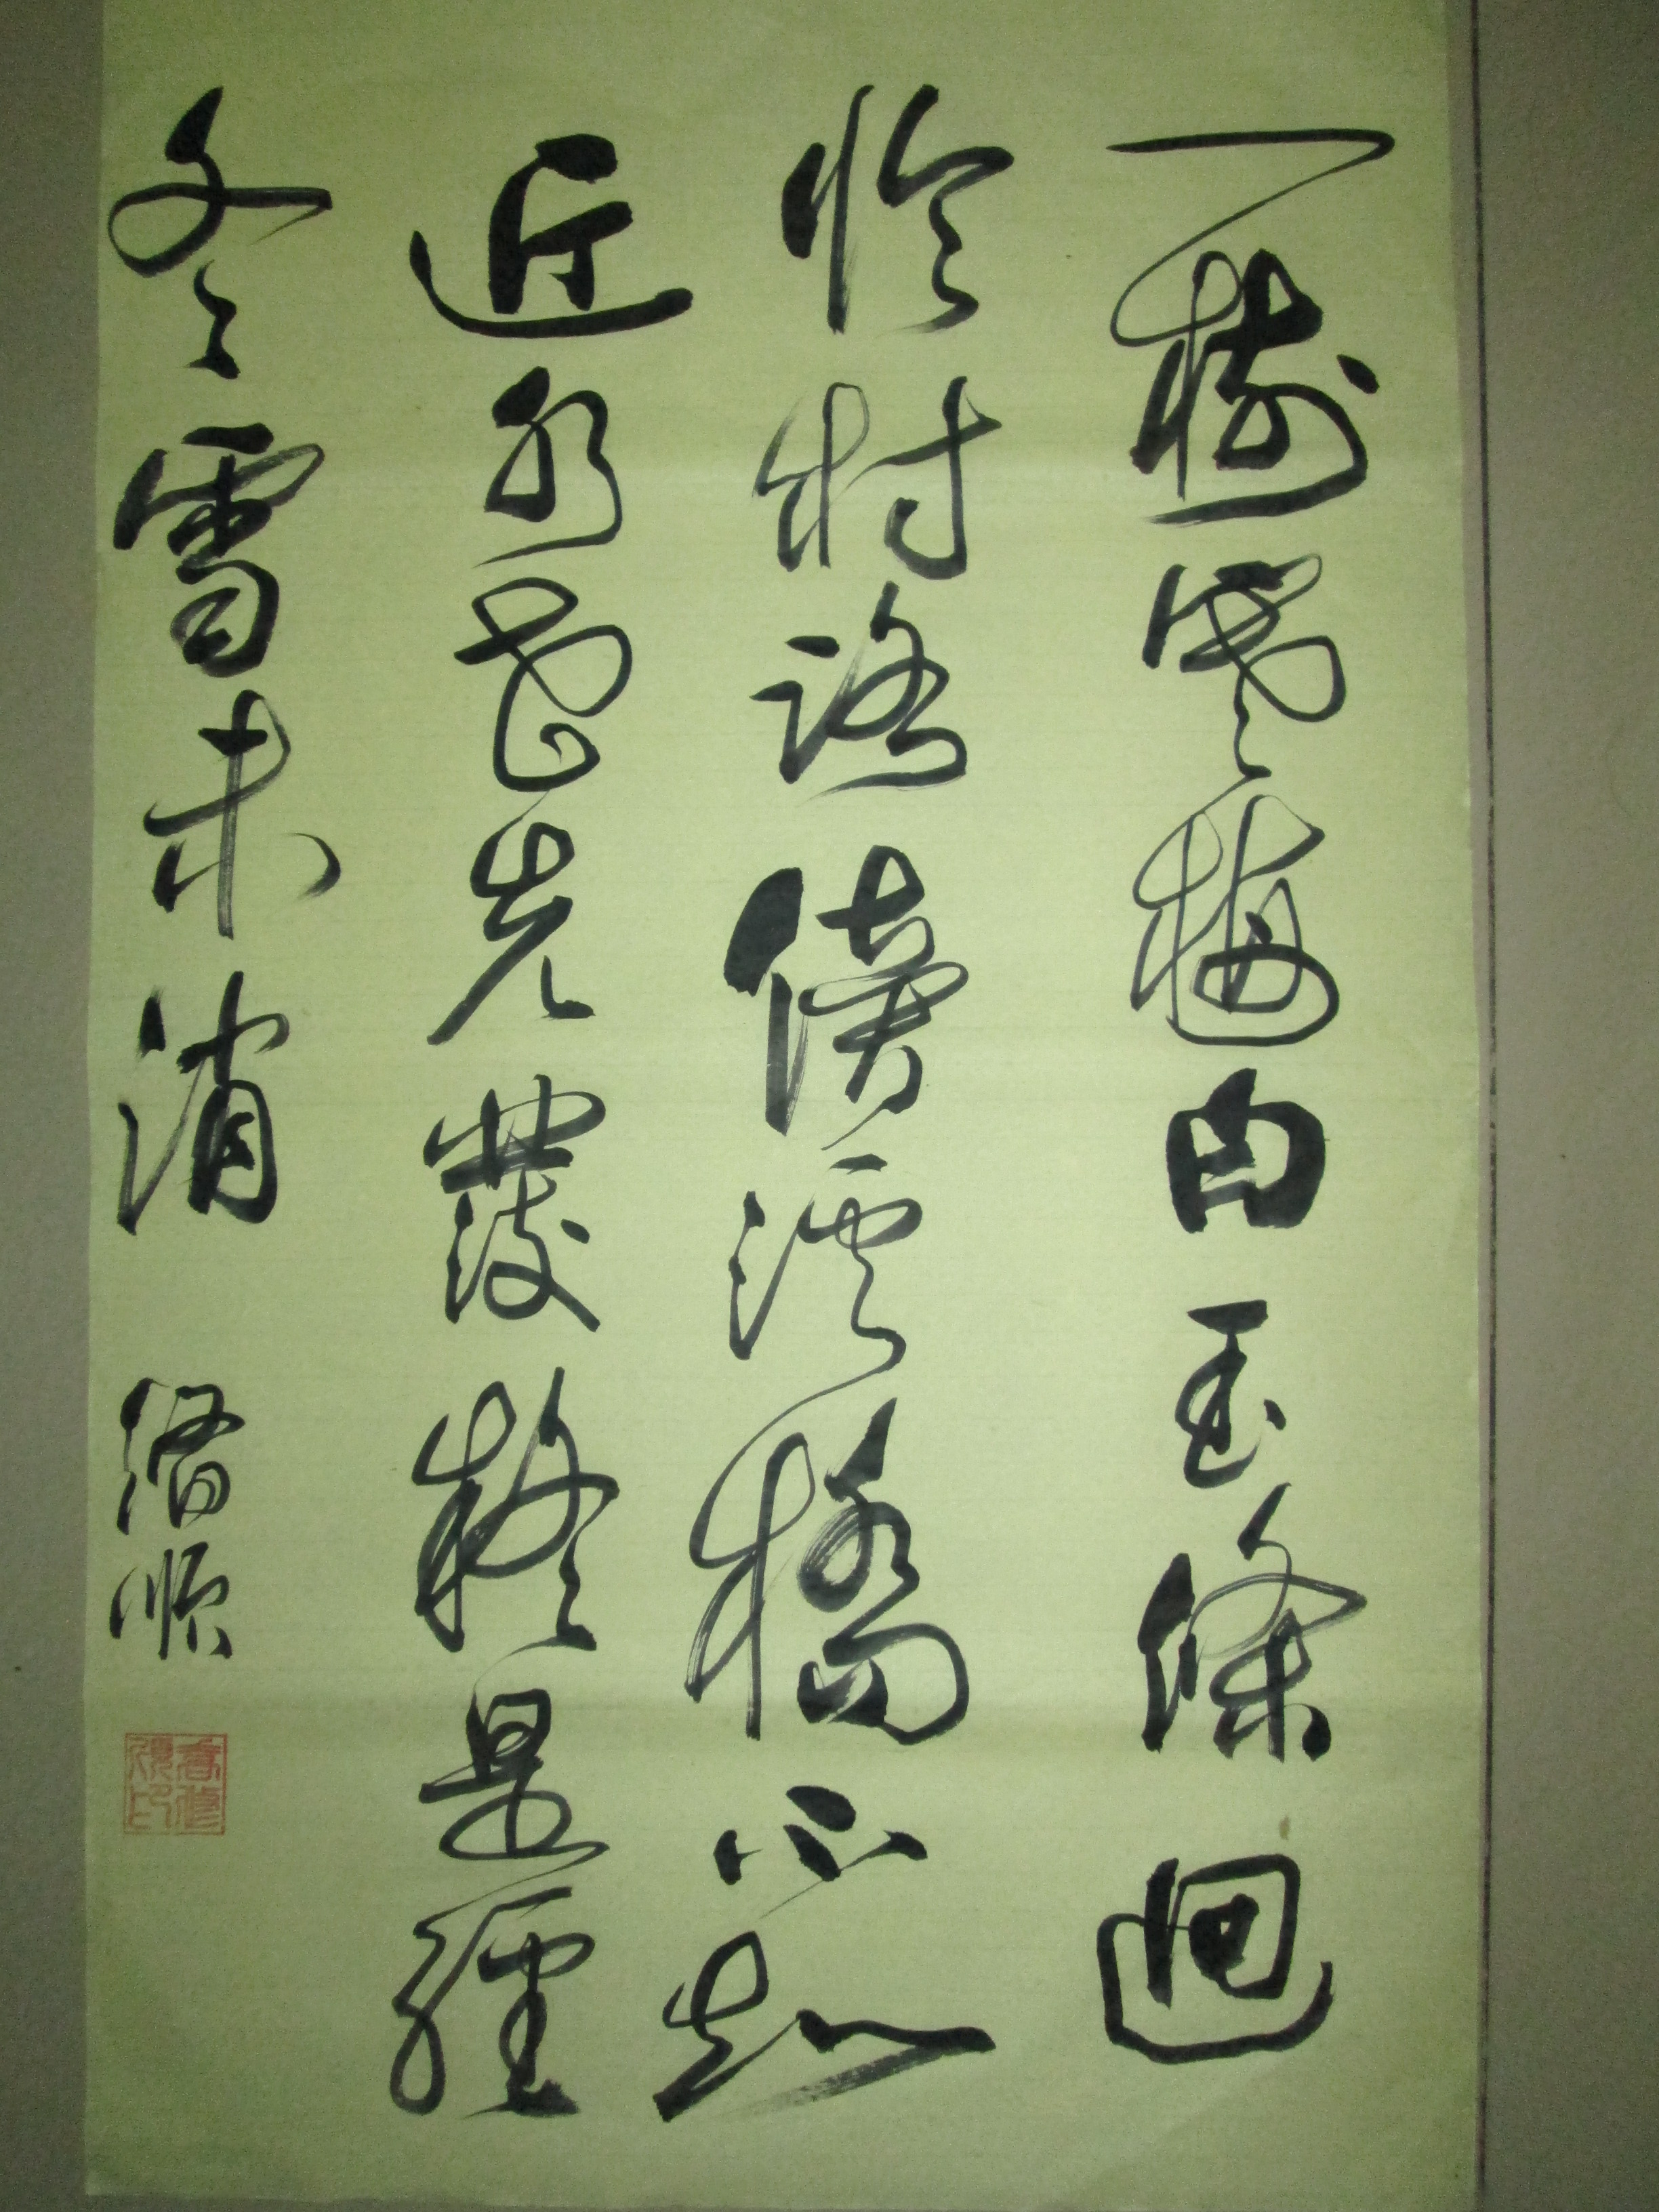 一樹寒梅白玉條迥
臨村路傍溪橋不知
近水花先發疑是經
冬雪未消
脩順